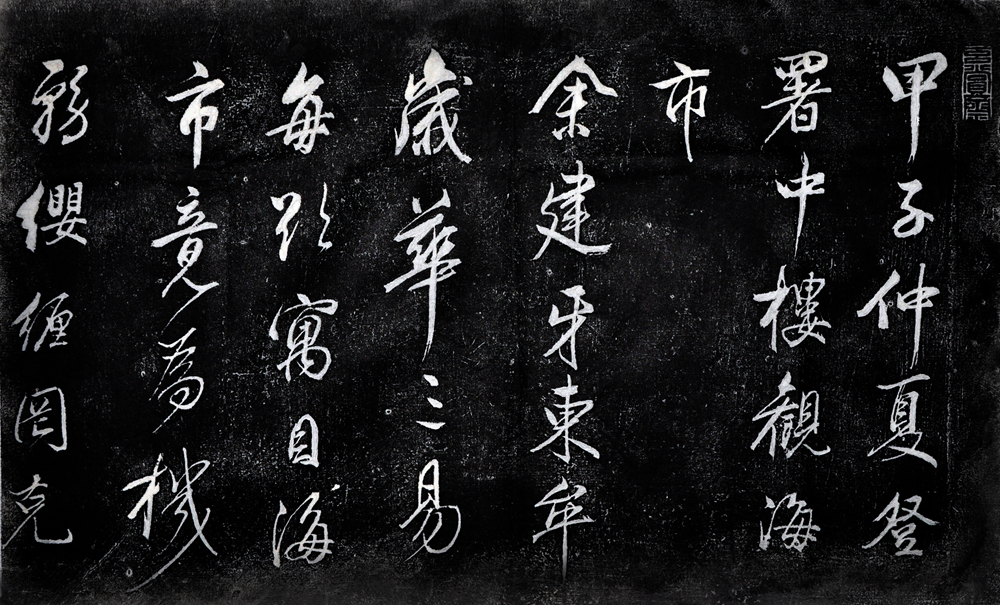 甲子仲夏登
署中樓觀海
市
余建牙東牟
歲華三易
每欲寓目海
市竟為機
務纓纏罔克